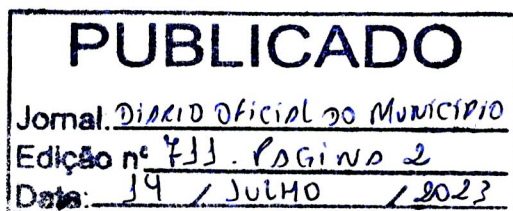 PUBLICADO
Jornal. DiÁRIO OFiciAl DO MUNiCíPiO
Edição nº 711. PÁGiNA 2
Data: 14 / JULHO / 2023